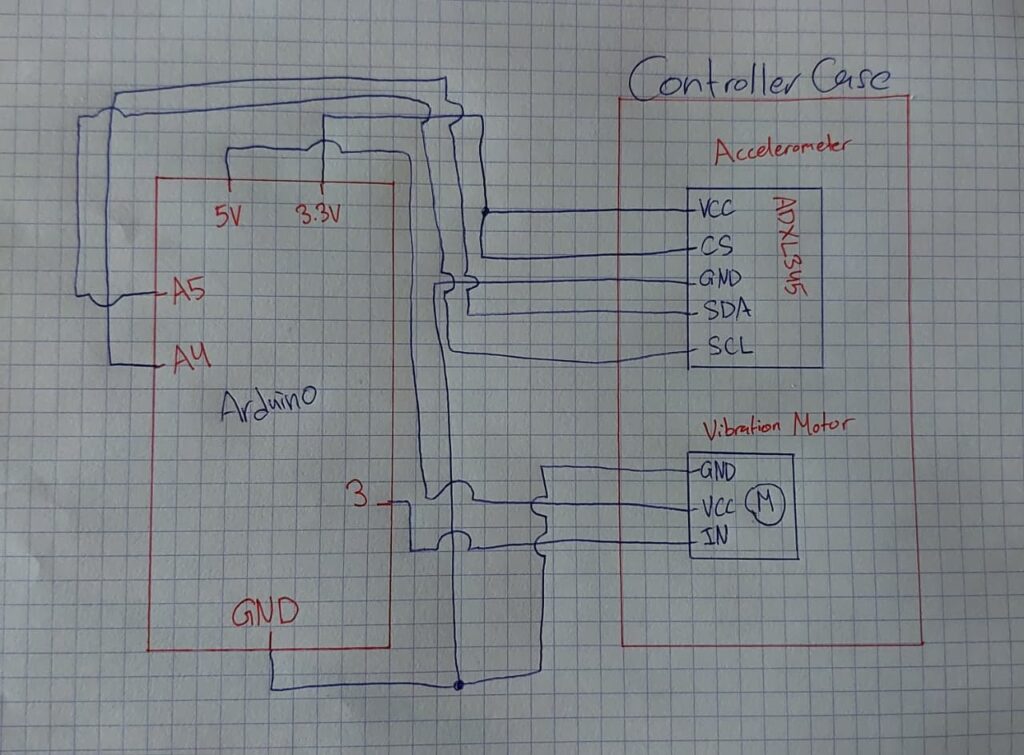 Controller Case
Accelerometer
ADXL345
VCC
CS
GND
SDA
SCL
5V
3.3V
A5
A4
Arduino
3
GND
Vibration Motor
GND
VCC
IN
M